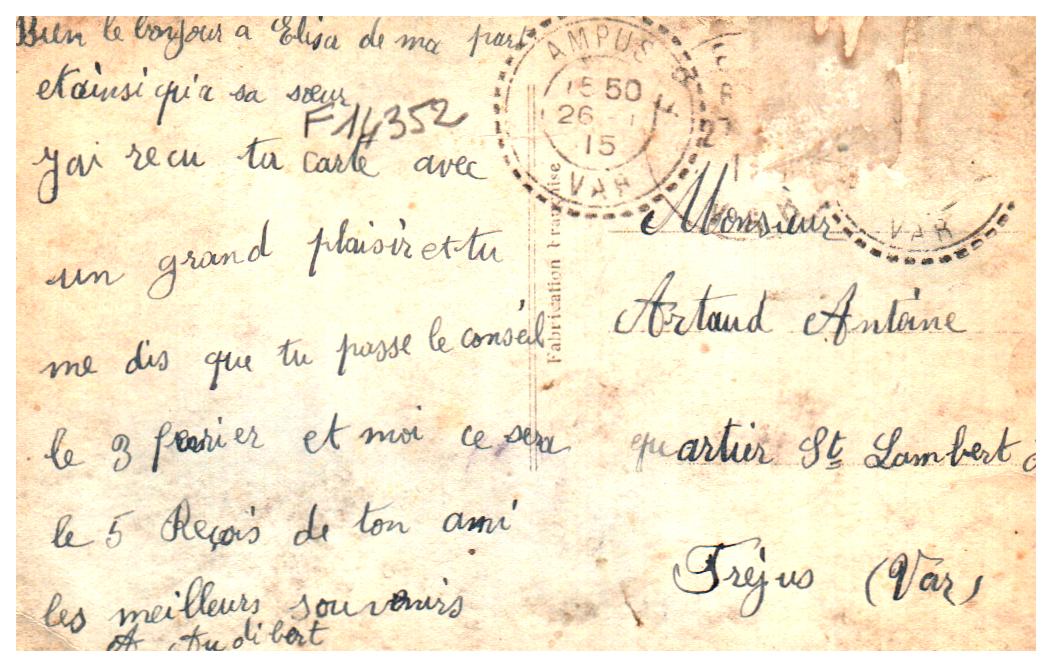 Bien le bonjour a Elisa de ma part
et ainsi qu'a sa sœur
F14352
J'ai recu ta carte avec
un grand plaisir et tu
me dis que tu passe le conseil
le 3 fevrier et moi ce sera
le 5 Reçois de ton ami
les meilleurs souvenirs
A Audibert
AMPUS
15 50
26 - 1
15
VAR
VAR
Fabrication Française
Monsieur
Artaud Antoine
quartier St Lambert à
Fréjus (Var)